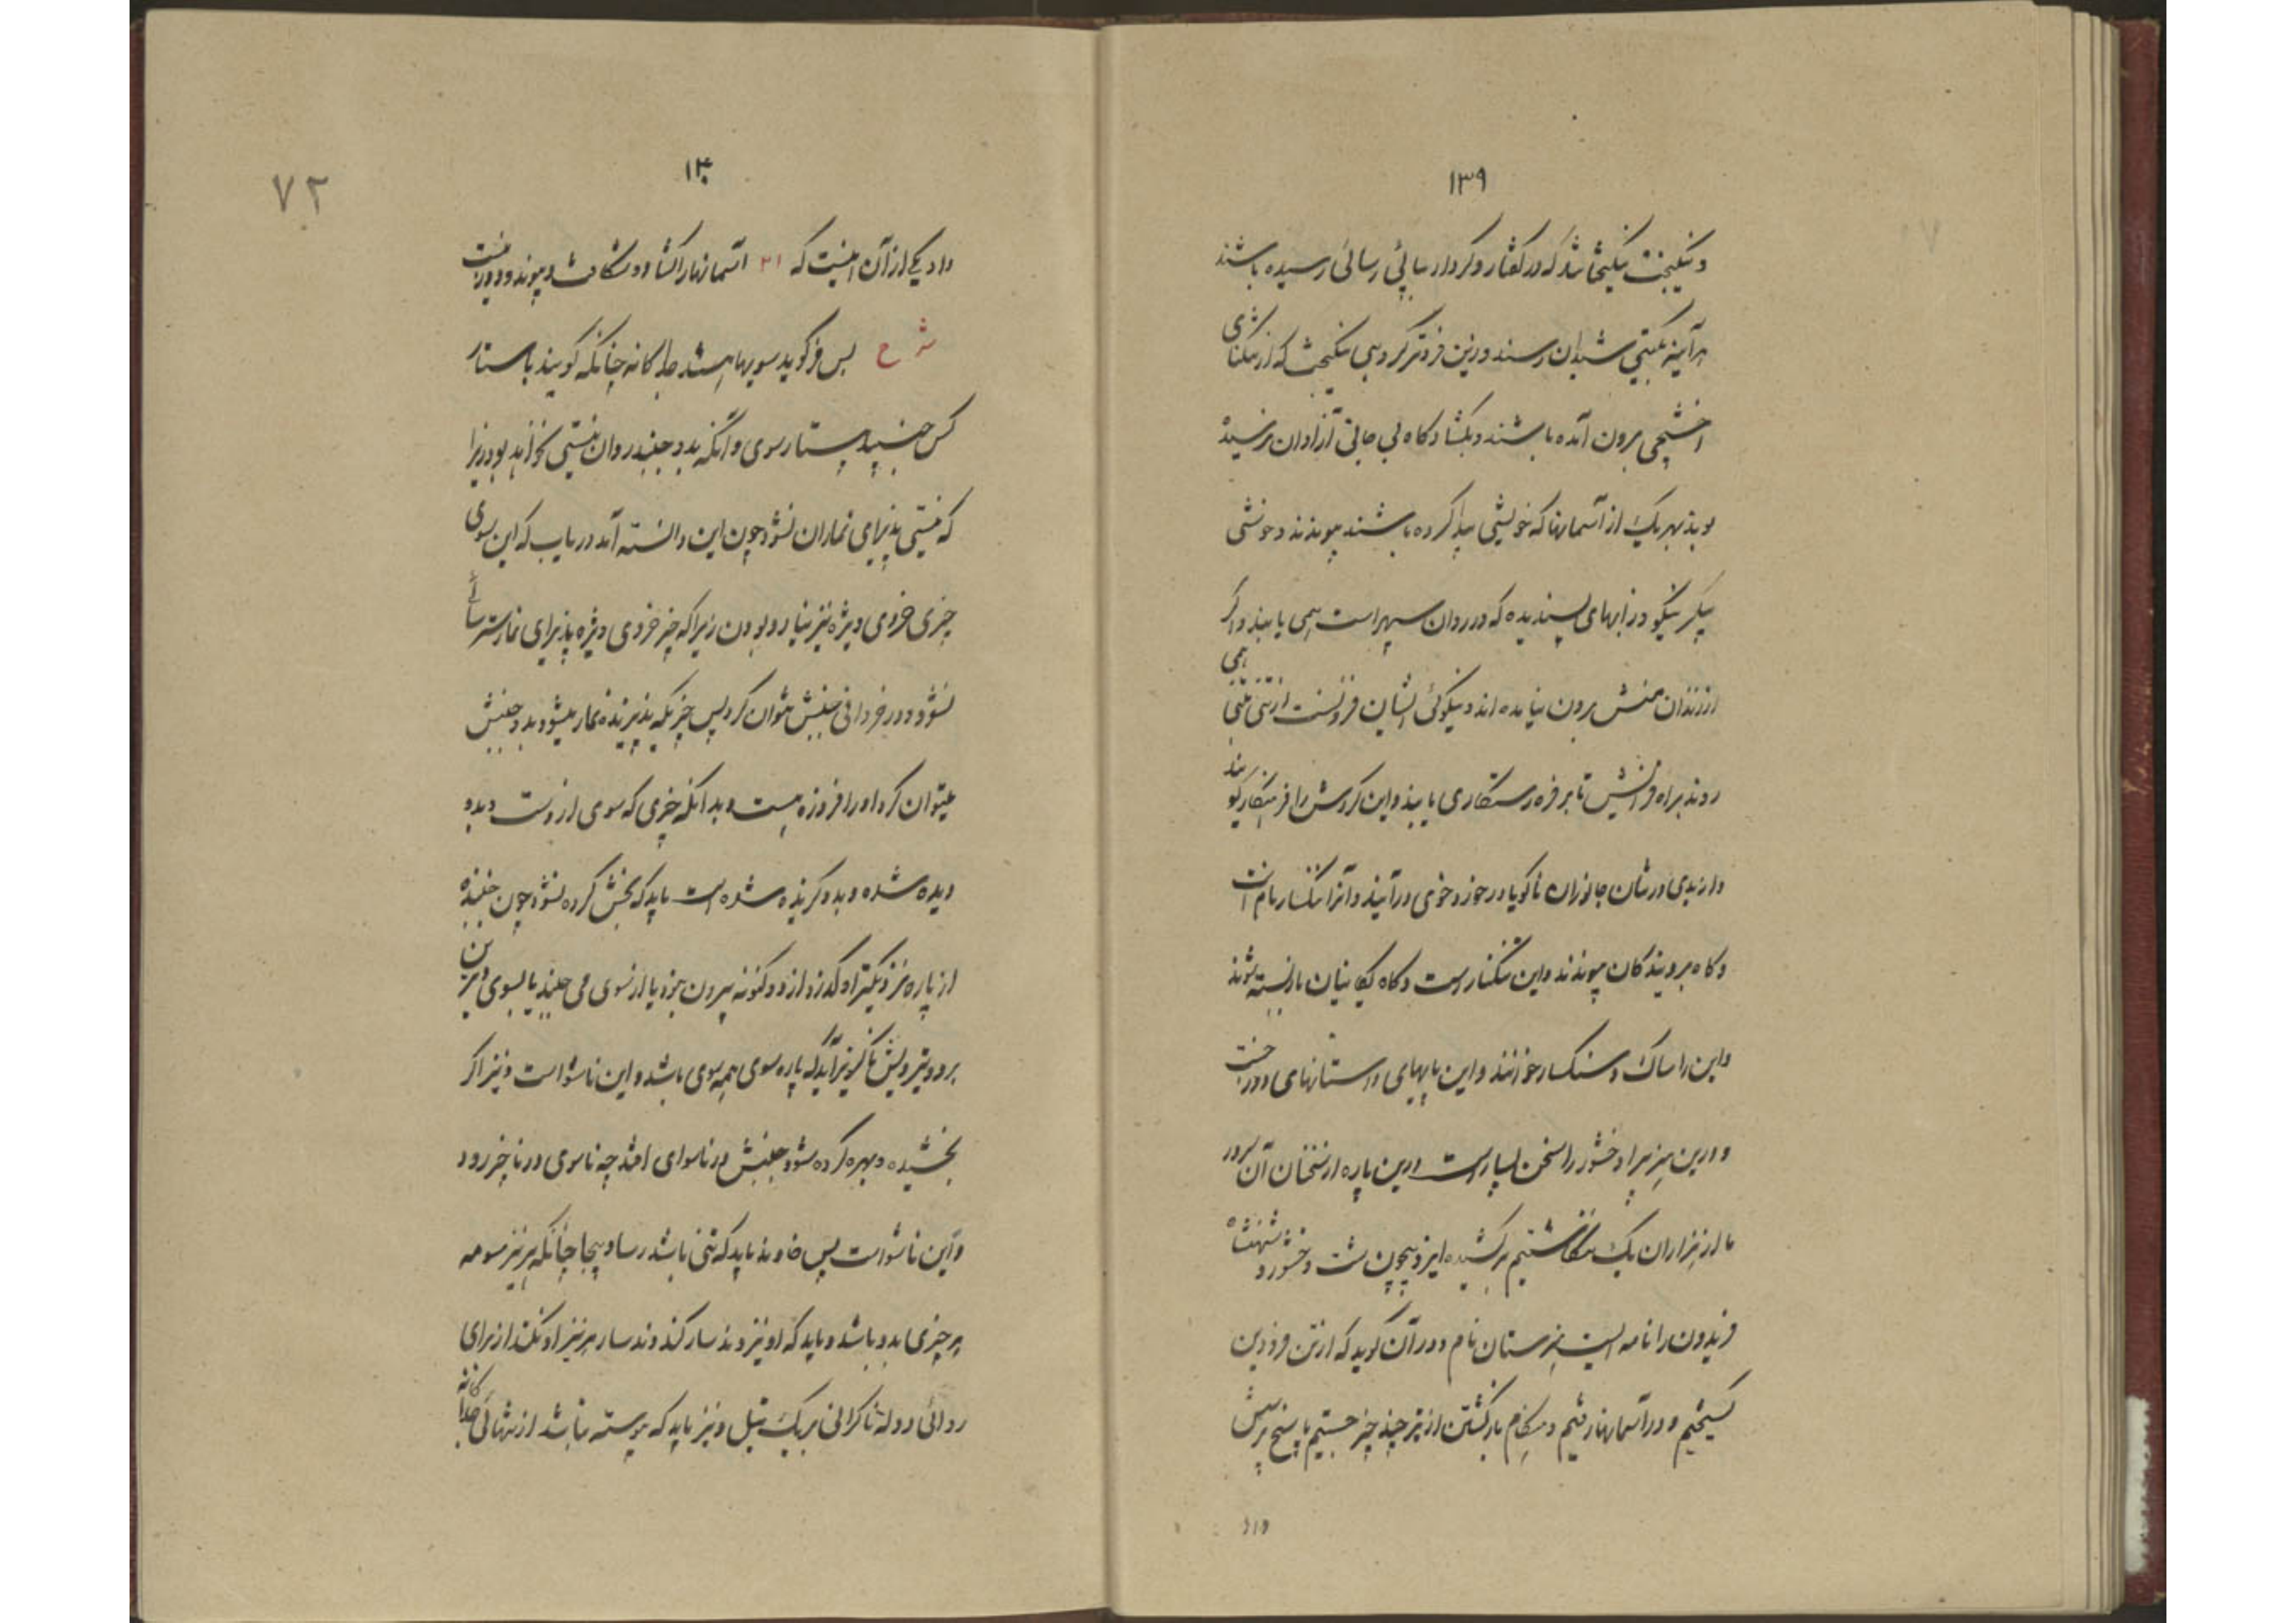 ۱۳۹
و نیکبخت نیکبختانند که در گفتار و کردار بپائی رسائی رسیده باشند
هرآینه بگیتی شیدان رسند و زین فروتر گروهی نیکبخت که از تنگنای
اخشیجی برون آمده باشند و بگشادگاه بی جائی آزادان نرسیده
بوند بهریک از آسمانها که خویشی پیدا کرده باشند پیوندند و خوشی
پیکر نیکو و زابهای پسندیده که در روان سپهر است همی یابند و اگر
از زندان منش برون نیامده اند و نیکوئی ایشان فزونست از تنی بتنی همی
روند براه فرازش تا بر فره رستگاری یابند و این گردش را فرهنگسار گویند
و از بدی در تنان جانوران ناگویا در خورد خوی در آیند و آنرا ننگسار نام است
و گاه برویندگان پیوندند و این تنگسار است و گاه بکانیان بازبسته شوند
و این را ساک و سنگسار خوانند و این پایهای و استانهای دوزخست
و درین هنر پیر و خشور را سخن بسیار است و این پاره از سخنان آن سرور
ما از هزاران یک نگاشتیم برکشیده ایزد بیچون شت وخشور و شهنشاه
فریدون را نامه ایست هنرستان نام و در آن گوید که از تن فرودین
گسیختیم و در آسمانها رفتیم و هنگام بازگشتن از تیر چند چیز جستیم پاسخ پرسش
داد
۱۴۰
۷۲
داد یکی از آن اینست که ۲۱ آسمانها را گشاد و شکافت و پیوند و دوزش نیست
شرح بس فرگوید سویها هستند جداگانه چنانکه گویند باستار
کس جنبید بیستار سوی و آنکه بدو جنبد روان نیستی نخواهد بود زیرا
که نیستی پذیرای نماران نشود چون این دانسته آمد دریاب که این سوی
چیزی خردی ویژه نیز نیارد بودن زیرا که چیز خردی ویژه پذیرای نمار سترسا
نشود و در خردانی جنبش نتوان کرد پس چیزیکه پذیرنده نمار میشود و بدو جنبش
میتوان کرد او را فروزه هست و بدانکه چیزی که سوی ازوست و بدو
دیده شده و بدو گزیده شده است باید که بخش کرده نشود چون جنبنده
از پاره نزدیکتر او گذرد از دو گونه بیرون نبود یا از سوی می جنبد یا بسوی و برین
برد و تیرویش ناگزیر آید که پاره سوی همه سوی باشد و این ناشوا است و نیز اگر
بخشیده و بهره کرده شود جنبش در ناسوای افتد چه ناسوی در ناچیز رود
و این ناشواست پس خاوند باید که تنی باشد رسا و بیجا چنانکه هر نیز سومه
هر چیزی بدو باشد و باید که او نیز وندسار کند وندسار هر نیز او نکند از برای
روائی دوله ناگرانی بر یک تیل و نیز باید که پیوسته نباشد از تنهائی جداگانه